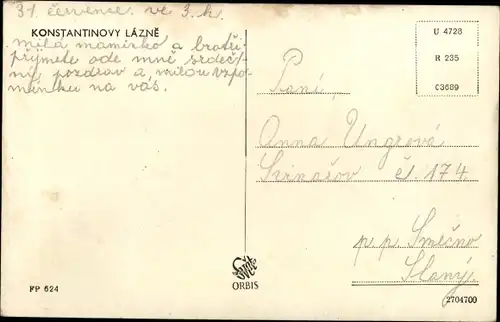 31 července. ve 3. h.
KONSTANTINOVY LÁZNĚ
milá maminko a bratři
přijmete ode mně srdeč
ný pozdrav a milou vzpo-
mínku na vás.
U 4728
R 235
C3689
Paní,
Anna Ungrová
čl 174.
p. p. Smečno
Slaný.
Svět
ORBIS
FP 624
2704700